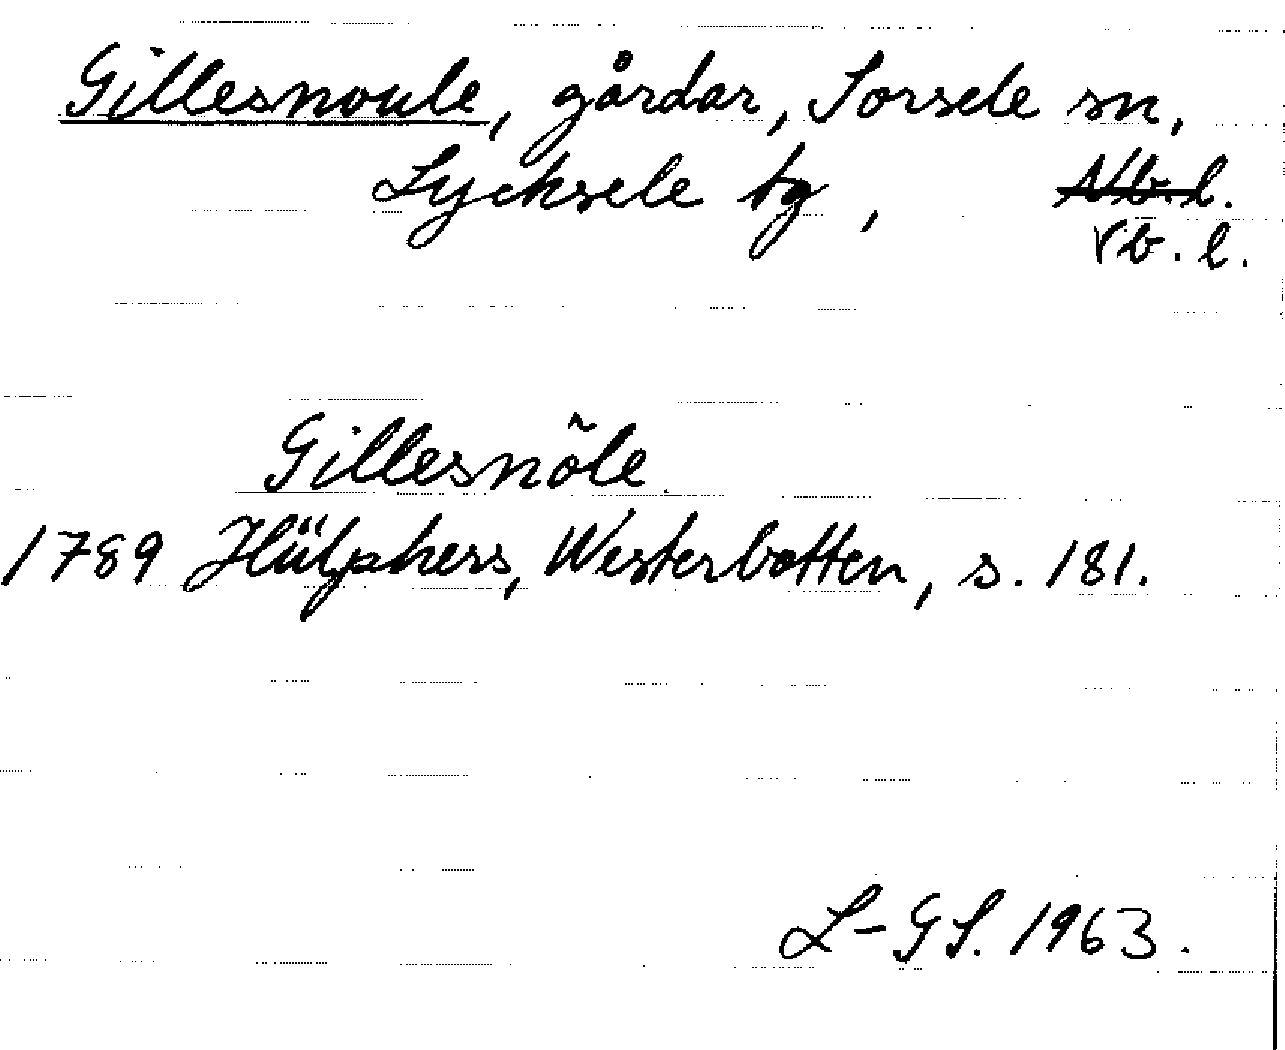 Gillesnoule, gårdar, Sorsele sn,
Lycksele tg, Nb. l.
Vb. l.
Gillesnõle
1789 Hülphers, Westerbotten, s. 181.
L-GS. 1963.